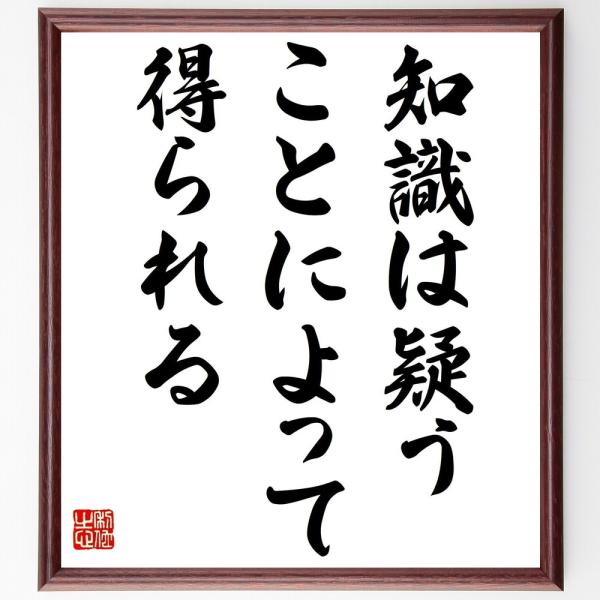 知識は疑う
ことによって
得られる